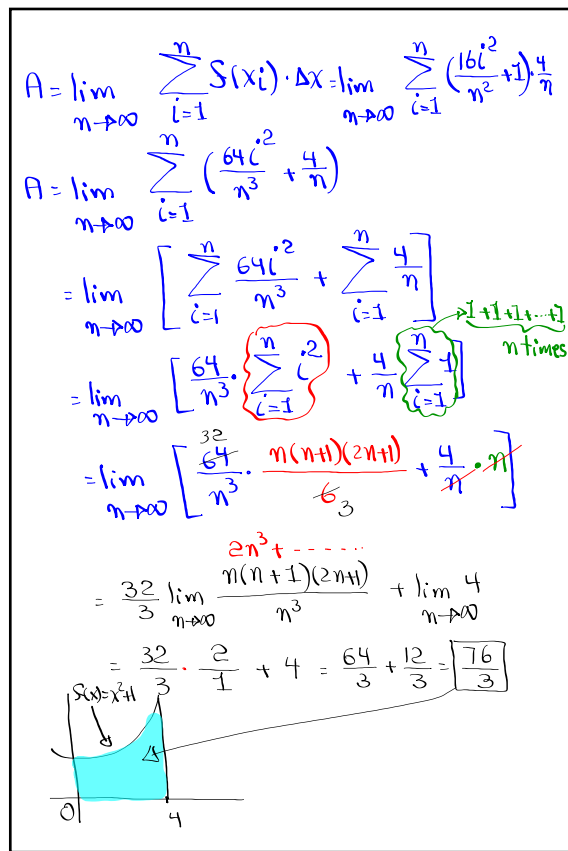 A = lim n→∞ ∑ i=1 n f(xi) · Δx = lim n→∞ ∑ i=1 n (16i²/n² + 1) · 4/n
A = lim n→∞ ∑ i=1 n (64i²/n³ + 4/n)
= lim n→∞ [ ∑ i=1 n 64i²/n³ + ∑ i=1 n 4/n ]
→ 1+1+1+⋯+1
n times
= lim n→∞ [ 64/n³ · ∑ i=1 n i² + 4/n ∑ i=1 n 1 ]
32
= lim n→∞ [ 64/n³ · n(n+1)(2n+1)/6 + 4/n · n ]
3
2n³ + ------
= 32/3 lim n→∞ n(n+1)(2n+1)/n³ + lim n→∞ 4
= 32/3 · 2/1 + 4 = 64/3 + 12/3 = 76/3
f(x)=x²+1
0 4